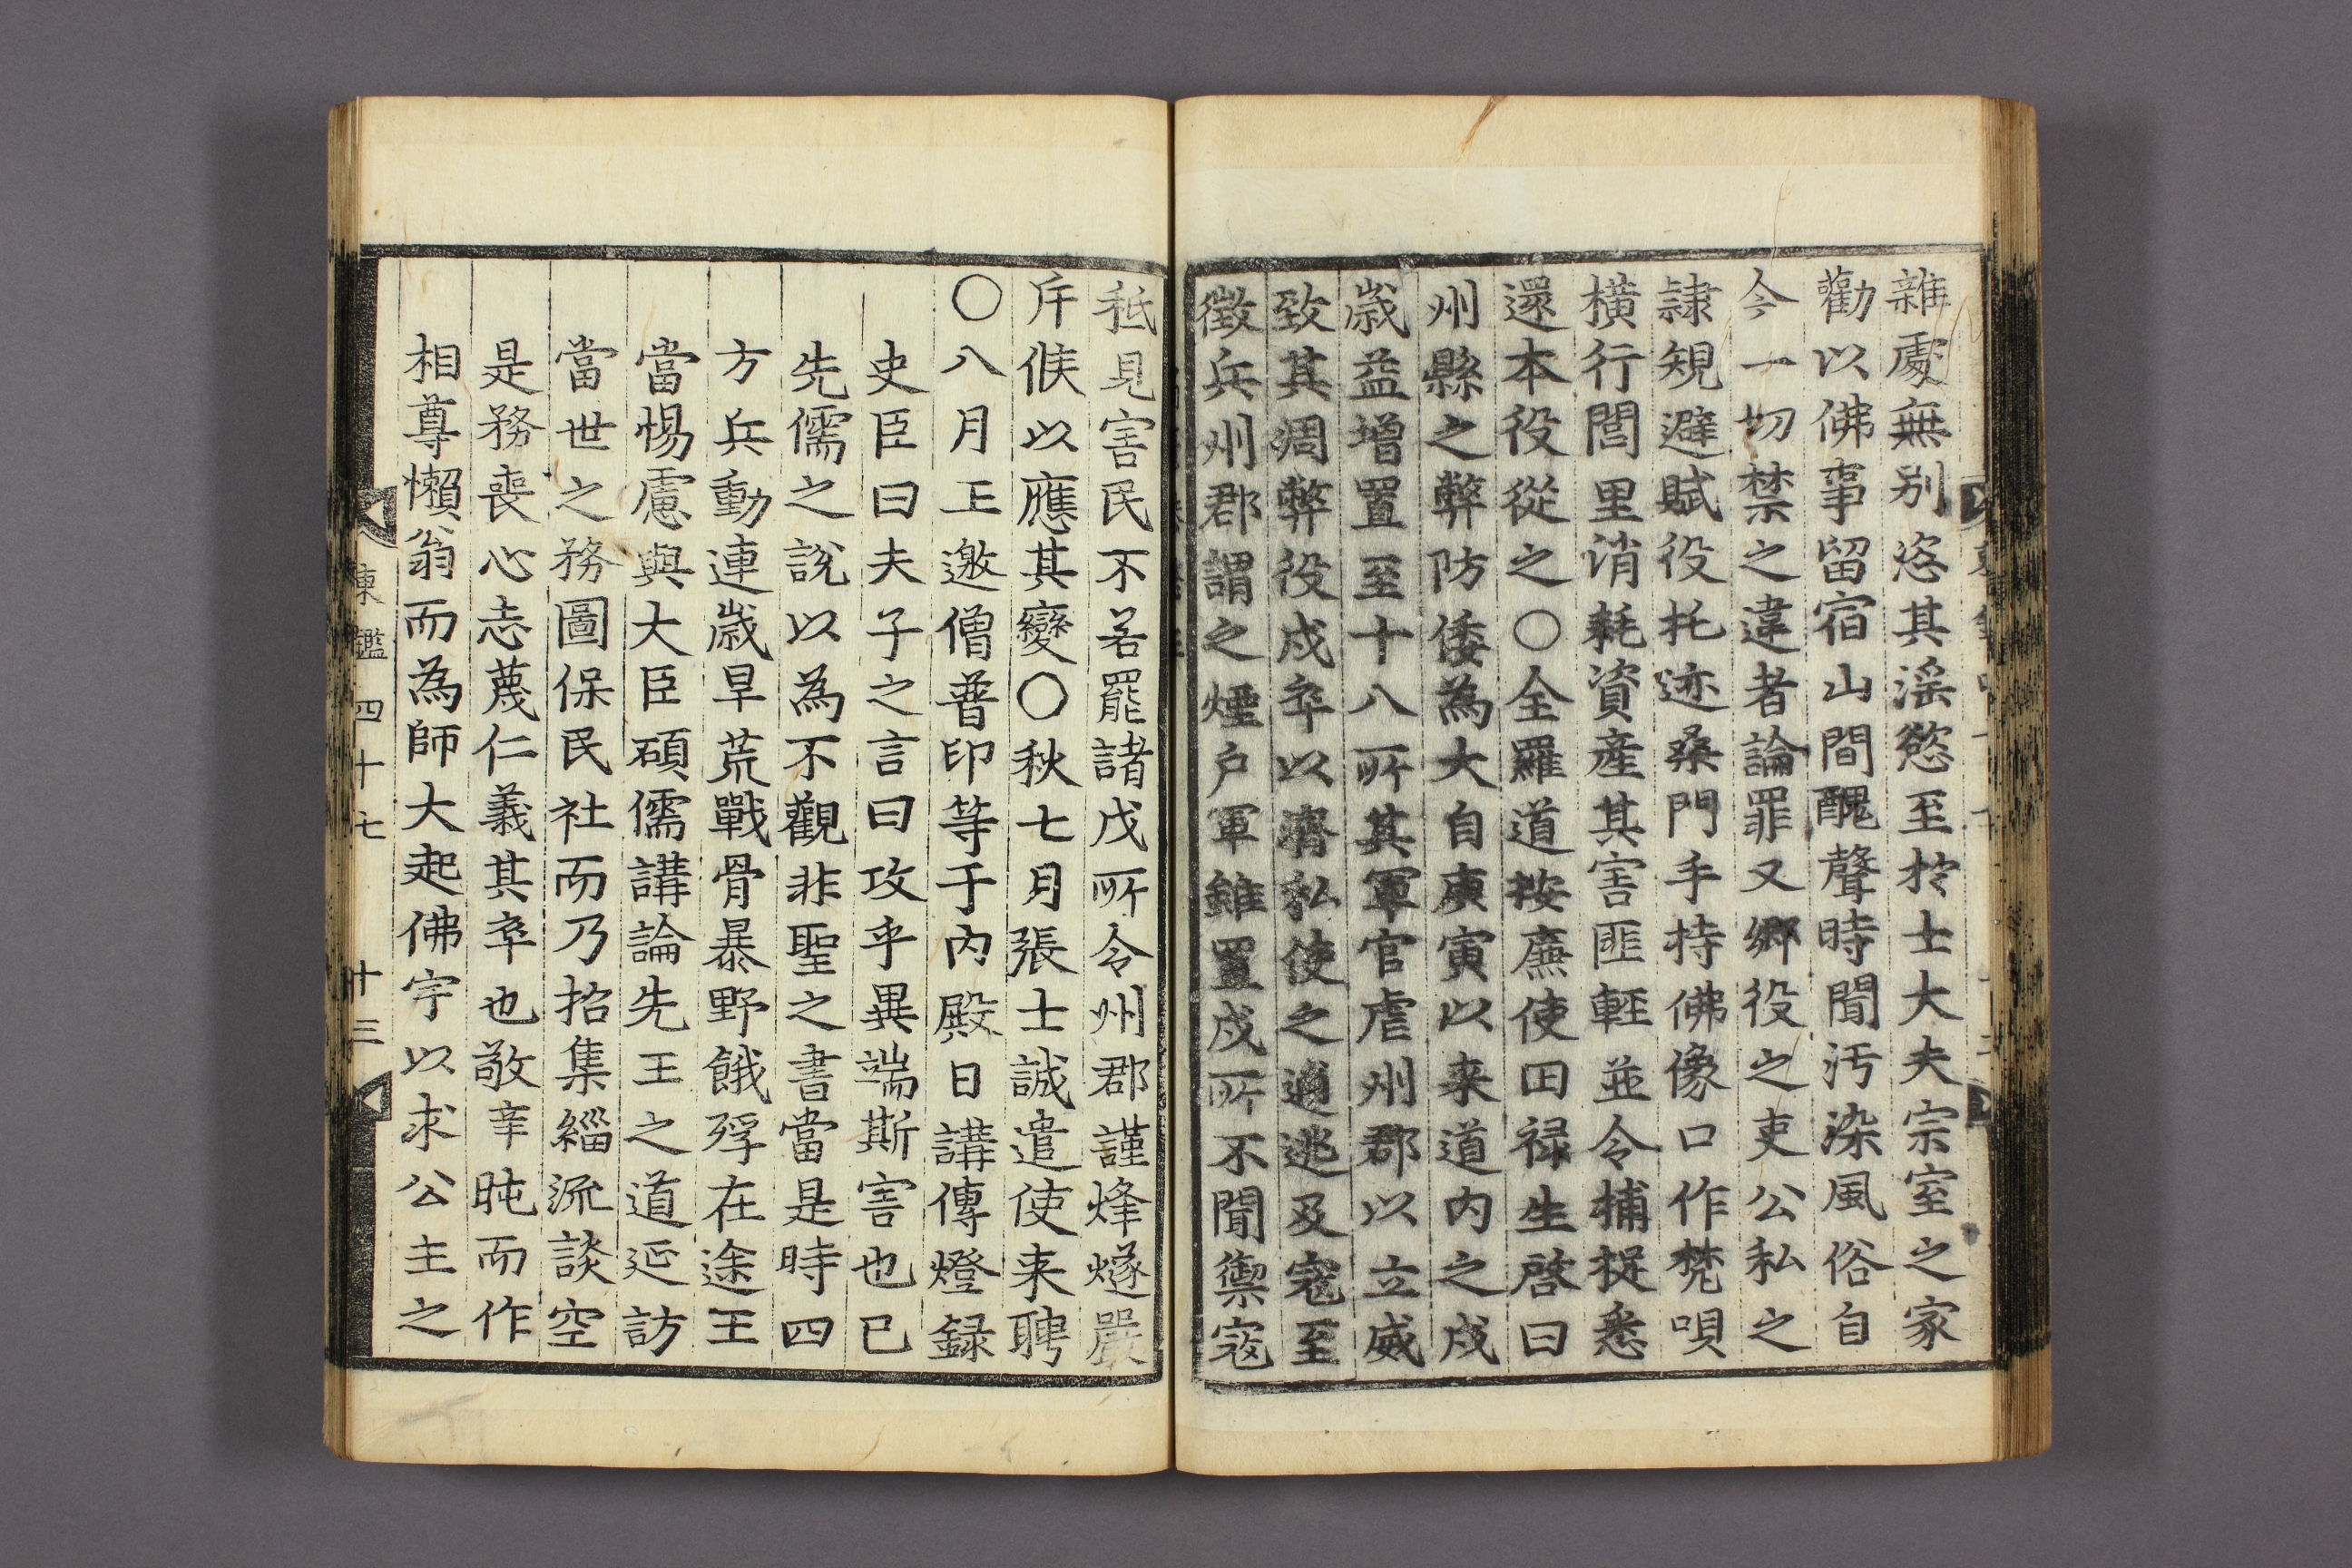 雜處無別恣其淫慾至於士大夫宗室之家
勸以佛事留宿山間醜聲時聞汚染風俗自
今一切禁之違者論罪又鄕役之吏公私之
隷規避賦役托迹桑門手持佛像口作梵唄
橫行閭里消耗資産其害匪輕並令捕捉悉
還本役從之○全羅道按廉使田祿生啓曰
州縣之弊防倭為大自庚寅以来道内之戍
歲益增置至十八所其軍官虐州郡以立威
致其凋弊役戍卒以濟私使之逋逃及寇至
徵兵州郡謂之煙戶軍雖置戍所不聞禦寇
秪見害民不若罷諸戍所令州郡謹烽燧嚴
斥候以應其變○秋七月張士誠遣使来聘
○八月王邀僧普印等于内殿日講傳燈錄
史臣曰夫子之言曰攻乎異端斯害也已
先儒之說以為不觀非聖之書當是時四
方兵動連歲旱荒戰骨暴野餓殍在途王
當惕慮與大臣碩儒講論先王之道延訪
當世之務圖保民社而乃招集緇流談空
是務喪心志蔑仁義其卒也敬辛旽而作
相尊懶翁而為師大起佛宇以求公主之
東鑑四十七 十三